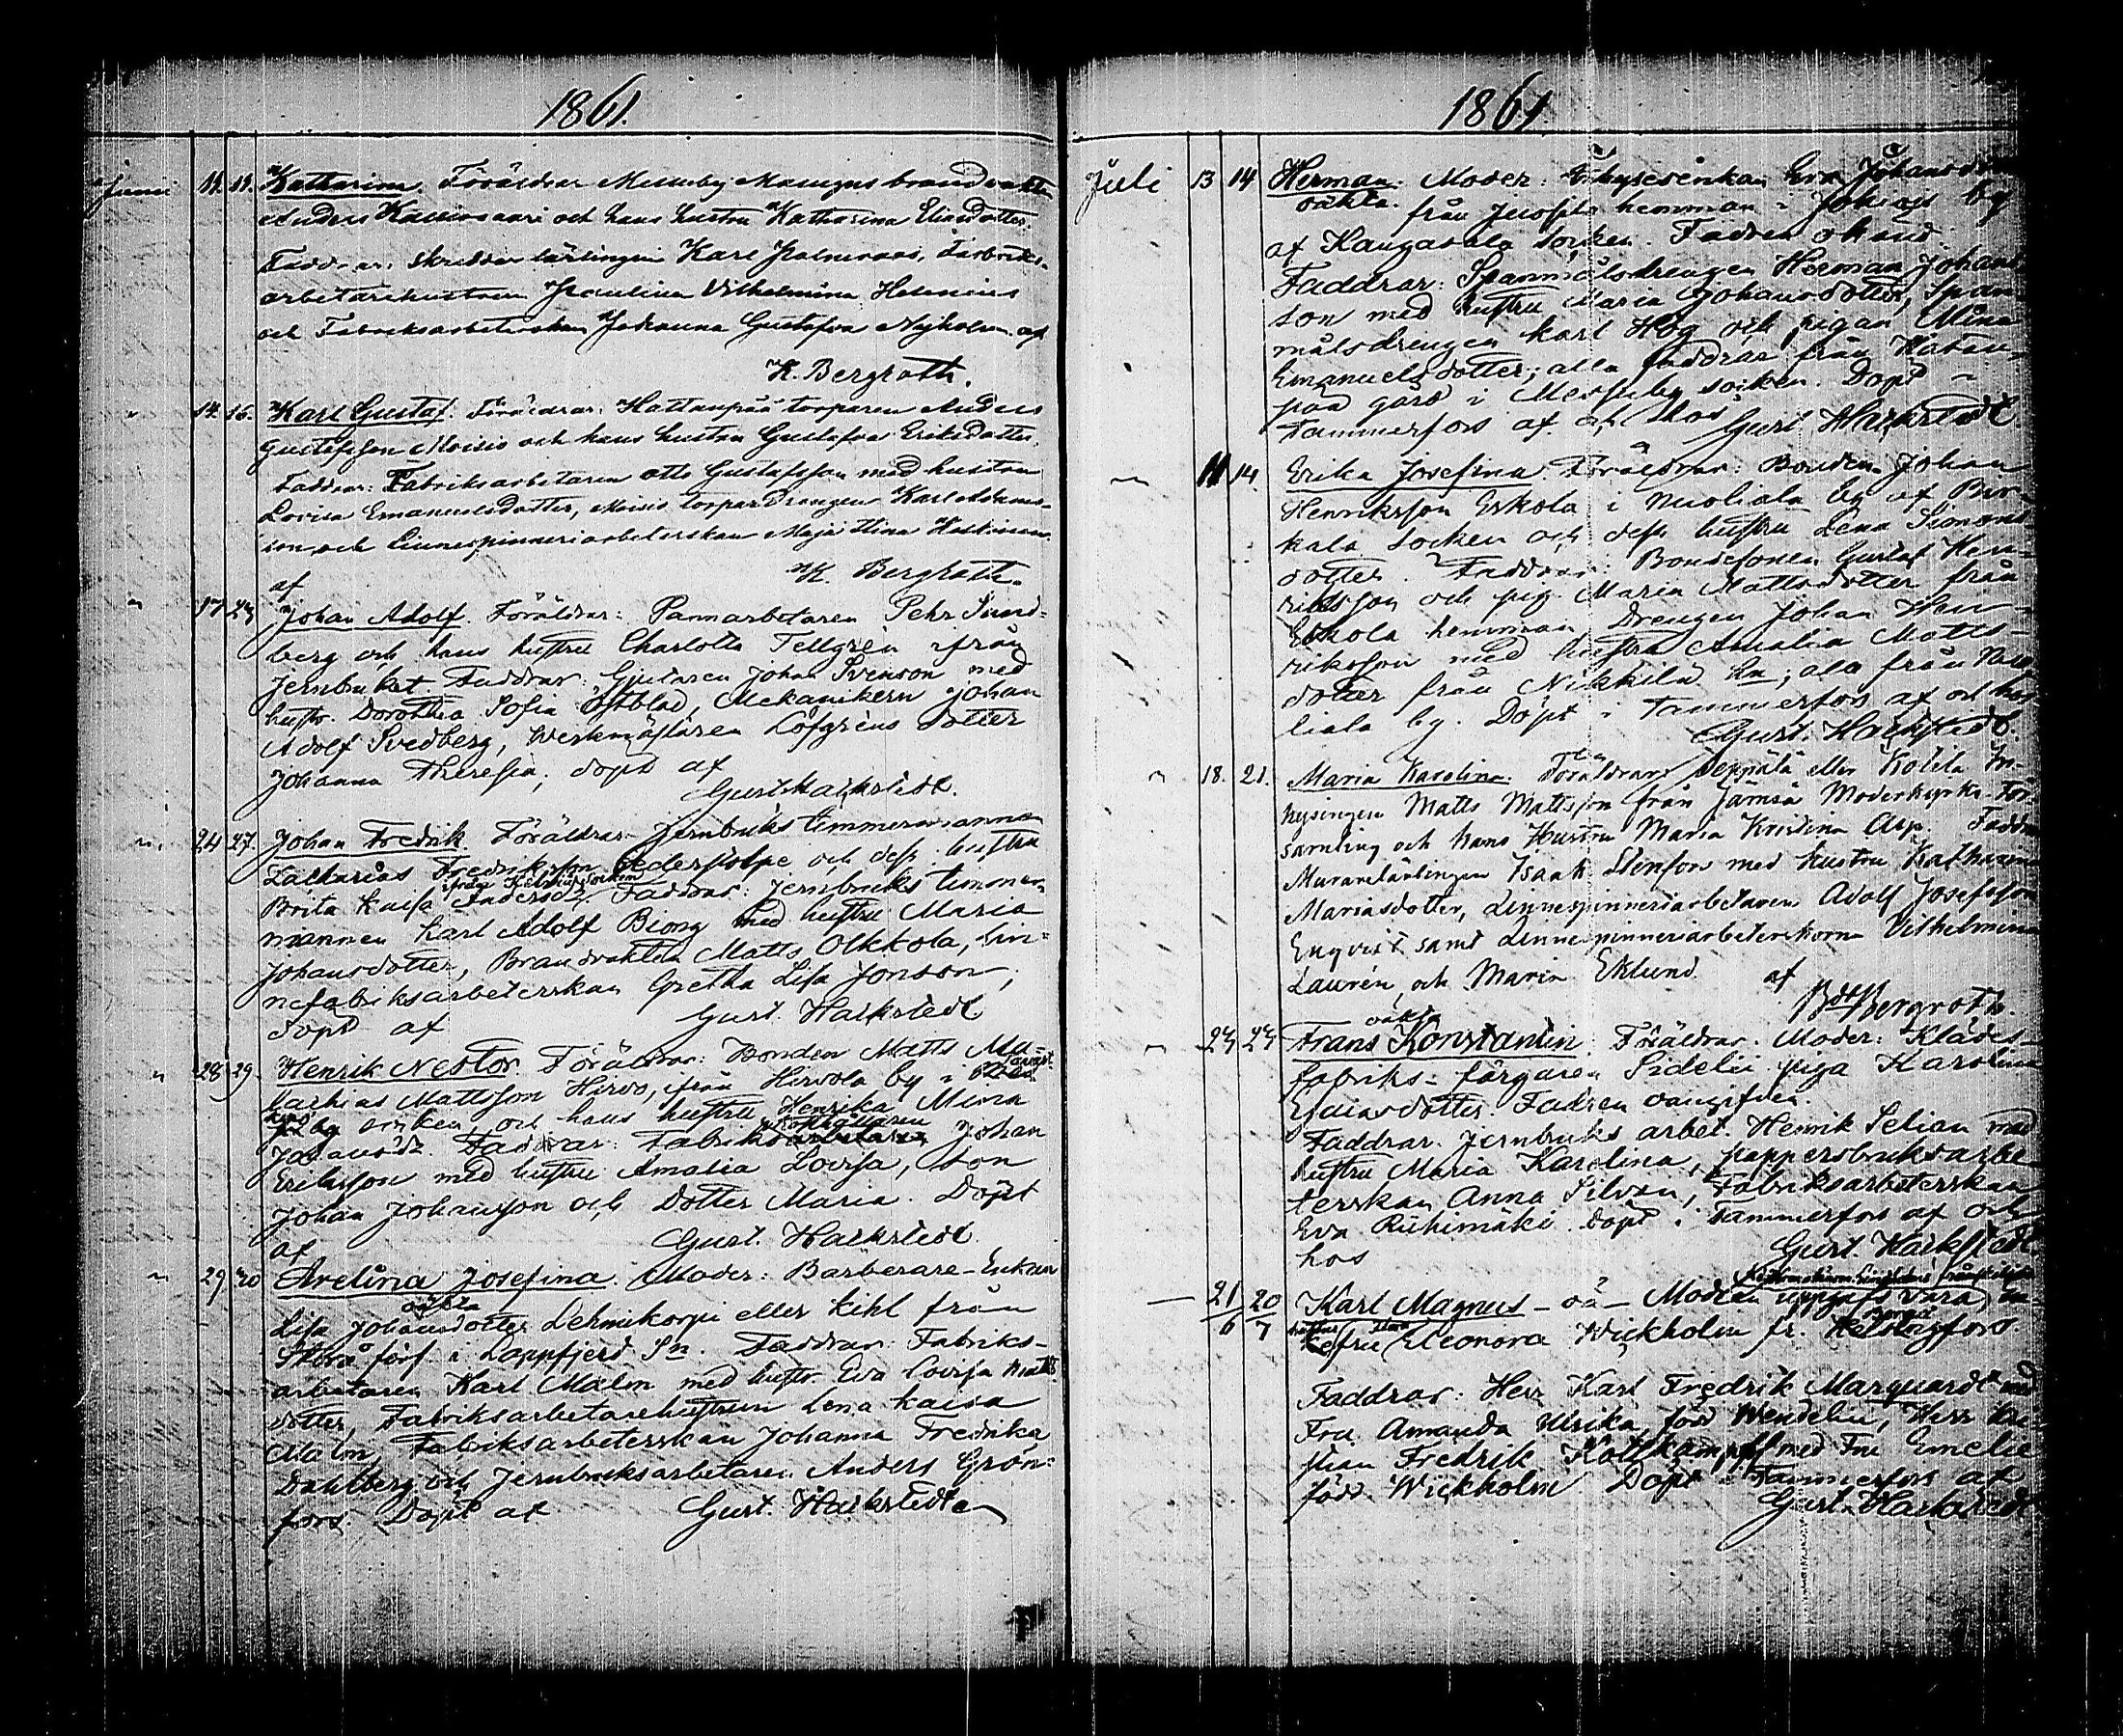 1861.
Junii 11. 11. Katharina. Föräldrar Messuby Manegus brandvakten
Anders Kallionsaari och hans hustru Katharina Eliasdotter.
Faddrar: Skräddar lärlingen Karl Palmroos, Fabriks-
arbetarehustrun Paulina Vilhelmina Helenius
och Fabriksarbeterskan Johanna Gustafva Nyholm. af
K. Bergroth.
" 14. 16. Karl Gustaf. Föräldrar: Hattanpää torparen Anders
Gustafsson Moisio och hans hustru Gustafva Eriksdotter.
Faddrar: Fabriksarbetaren Otto Gustafsson med hustru
Lovisa Emanuelsdotter, Moisio torpar Drängen Karl Adams-
son, och Linnespinneriarbeterskan Maja Stina
af K. Bergroth.
" 17 23 Johan Adolf. Föräldrar: Pannarbetaren Pehr Sund-
berg och hans hustru Charlotta Tellgrén ifrån
Jernbruket. Faddrar: Gjutaren Johan Svenson med
hustr. Dorothea Sofia Östblad, Mekanikern Johan
Adolf Svedberg, Werkmästaren Löfgrens dotter
Johanna Theresia, döpt af
Gust. Hackstedt.
" 24 27. Johan Fredrik. Föräldrar Jernbruks timmermannen
Zacharias Fredriksson Cederstolpe och dess hustru
ifrån socken
Brita Kaisa Andersdr. Faddrar: Jernbruks timmer-
mannen Karl Adolf Biong med hustru Maria
Johansdotter, Brandvakten Matts Olkkola, Lin-
nefabriksarbeterskan Gretha Lisa Jonson,
döpt af Gust. Hackstedt
" 28 29. Henrik Nestor. Föräldrar: Bonden Matts Ma-
thias Mattsson Hirvo, ifrån Hirvola by i
socken, och hans hustru Henrika Mina
Johansdr. Faddrar: Johan
Eriksson med hustru Amalia Lovisa, Son
Johan Johansson och Dotter Maria. Döpt
af Gust. Hackstedt.
" 29 30 Avelina Josefina. Moder: Barberare-Enkan
oäkta
Lisa Johansdotter Lehmikorpi eller Kihl från
Storå förs. i Lappfjerd Sn. Faddrar: Fabriks-
arbetaren Karl Malm med hustr. Eva Lovisa Matts-
dotter, Fabriksarbetarehustrun Lena Kaisa
Malm, Fabriksarbeterskan Johanna Fredrika
Dahlberg och Jernbruksarbetaren Anders Grön-
fors. Döpt af Gust. Hackstedt
1861.
Juli 13 14 Herman. Moder: Inhysesenkan Eva Johansdotter
oäkta. från Juoppila hemman i by
af Kangasala socken. Fadren okänd.
Faddrar: Spanmålsdrengen Herman Johans-
son med hustru Maria Johansdotter, Span-
målsdrengen Karl Hög och pigan Mina
Emanuelsdotter; alla faddrar från Hatan-
pää gård i Messuby socken. Döpt i
Tammerfors af och hos Gust Hackstedt.
" 11 14. Erika Josefina. Föräldrar: Bonden Johan
Henriksson Eskola i Nuoliala by af Bir-
kala Socken och dess hustru Lena Simons-
dotter. Faddrar: Bondesonen Gustaf Hen-
riksson och pig. Maria Mattsdotter från
Eskola hemman, Drengen Johan Hen-
riksson med hustru Amalia Matts-
dotter från Nikkilä hn; alla från Nuo-
liala by. Döpt i Tammerfors af och hos
Gust. Hackstedt.
" 18. 21. Maria Karolina. Föräldrar: Seppälä eller Kotila In-
hysingen Matts Mattsson från Jämsä Moderkyrko-För-
samling och hans Hustru Maria Kristina Asp. Faddrar
Murarelärlingen Isaak Stenfors med hustru Katharina
Mariasdotter, Linnespinneriarbetaren Adolf Josefsson
Enqvist samt Linnespinneriarbeterskorna Vilhelmina
Laurén, och Maria Eklund af
Bergroth.
oäkta
" 23 23 Frans Konstantin. Föräldrar: Moder: Klädes-
fabriks-färgaren Sidelii piga Karolina
Esaiasdotter. Fadren oangifven.
Faddrar: Jernbruks arbet. Henrik Selian med
hustru Maria Karolina, pappersbruksarbe-
terskan Anna Silvan, Fabriksarbeterskan
Eva Riihimäki. Döpt i Tammerfors af och
hos Gust Hackstedt
— 21/6 20/7 Karl Magnus – oä – Modren uppgifs vara
Eleonora Wickholm fr.
Faddrar: Herr Karl Fredrik Marquardt med
Fru Amanda Ulrika född Wendelin, Herr Kri-
stian Fredrik Kottkampff med Fru Emelie
född Wickholm Döpt i Tammerfors af
Gust. Hackstedt